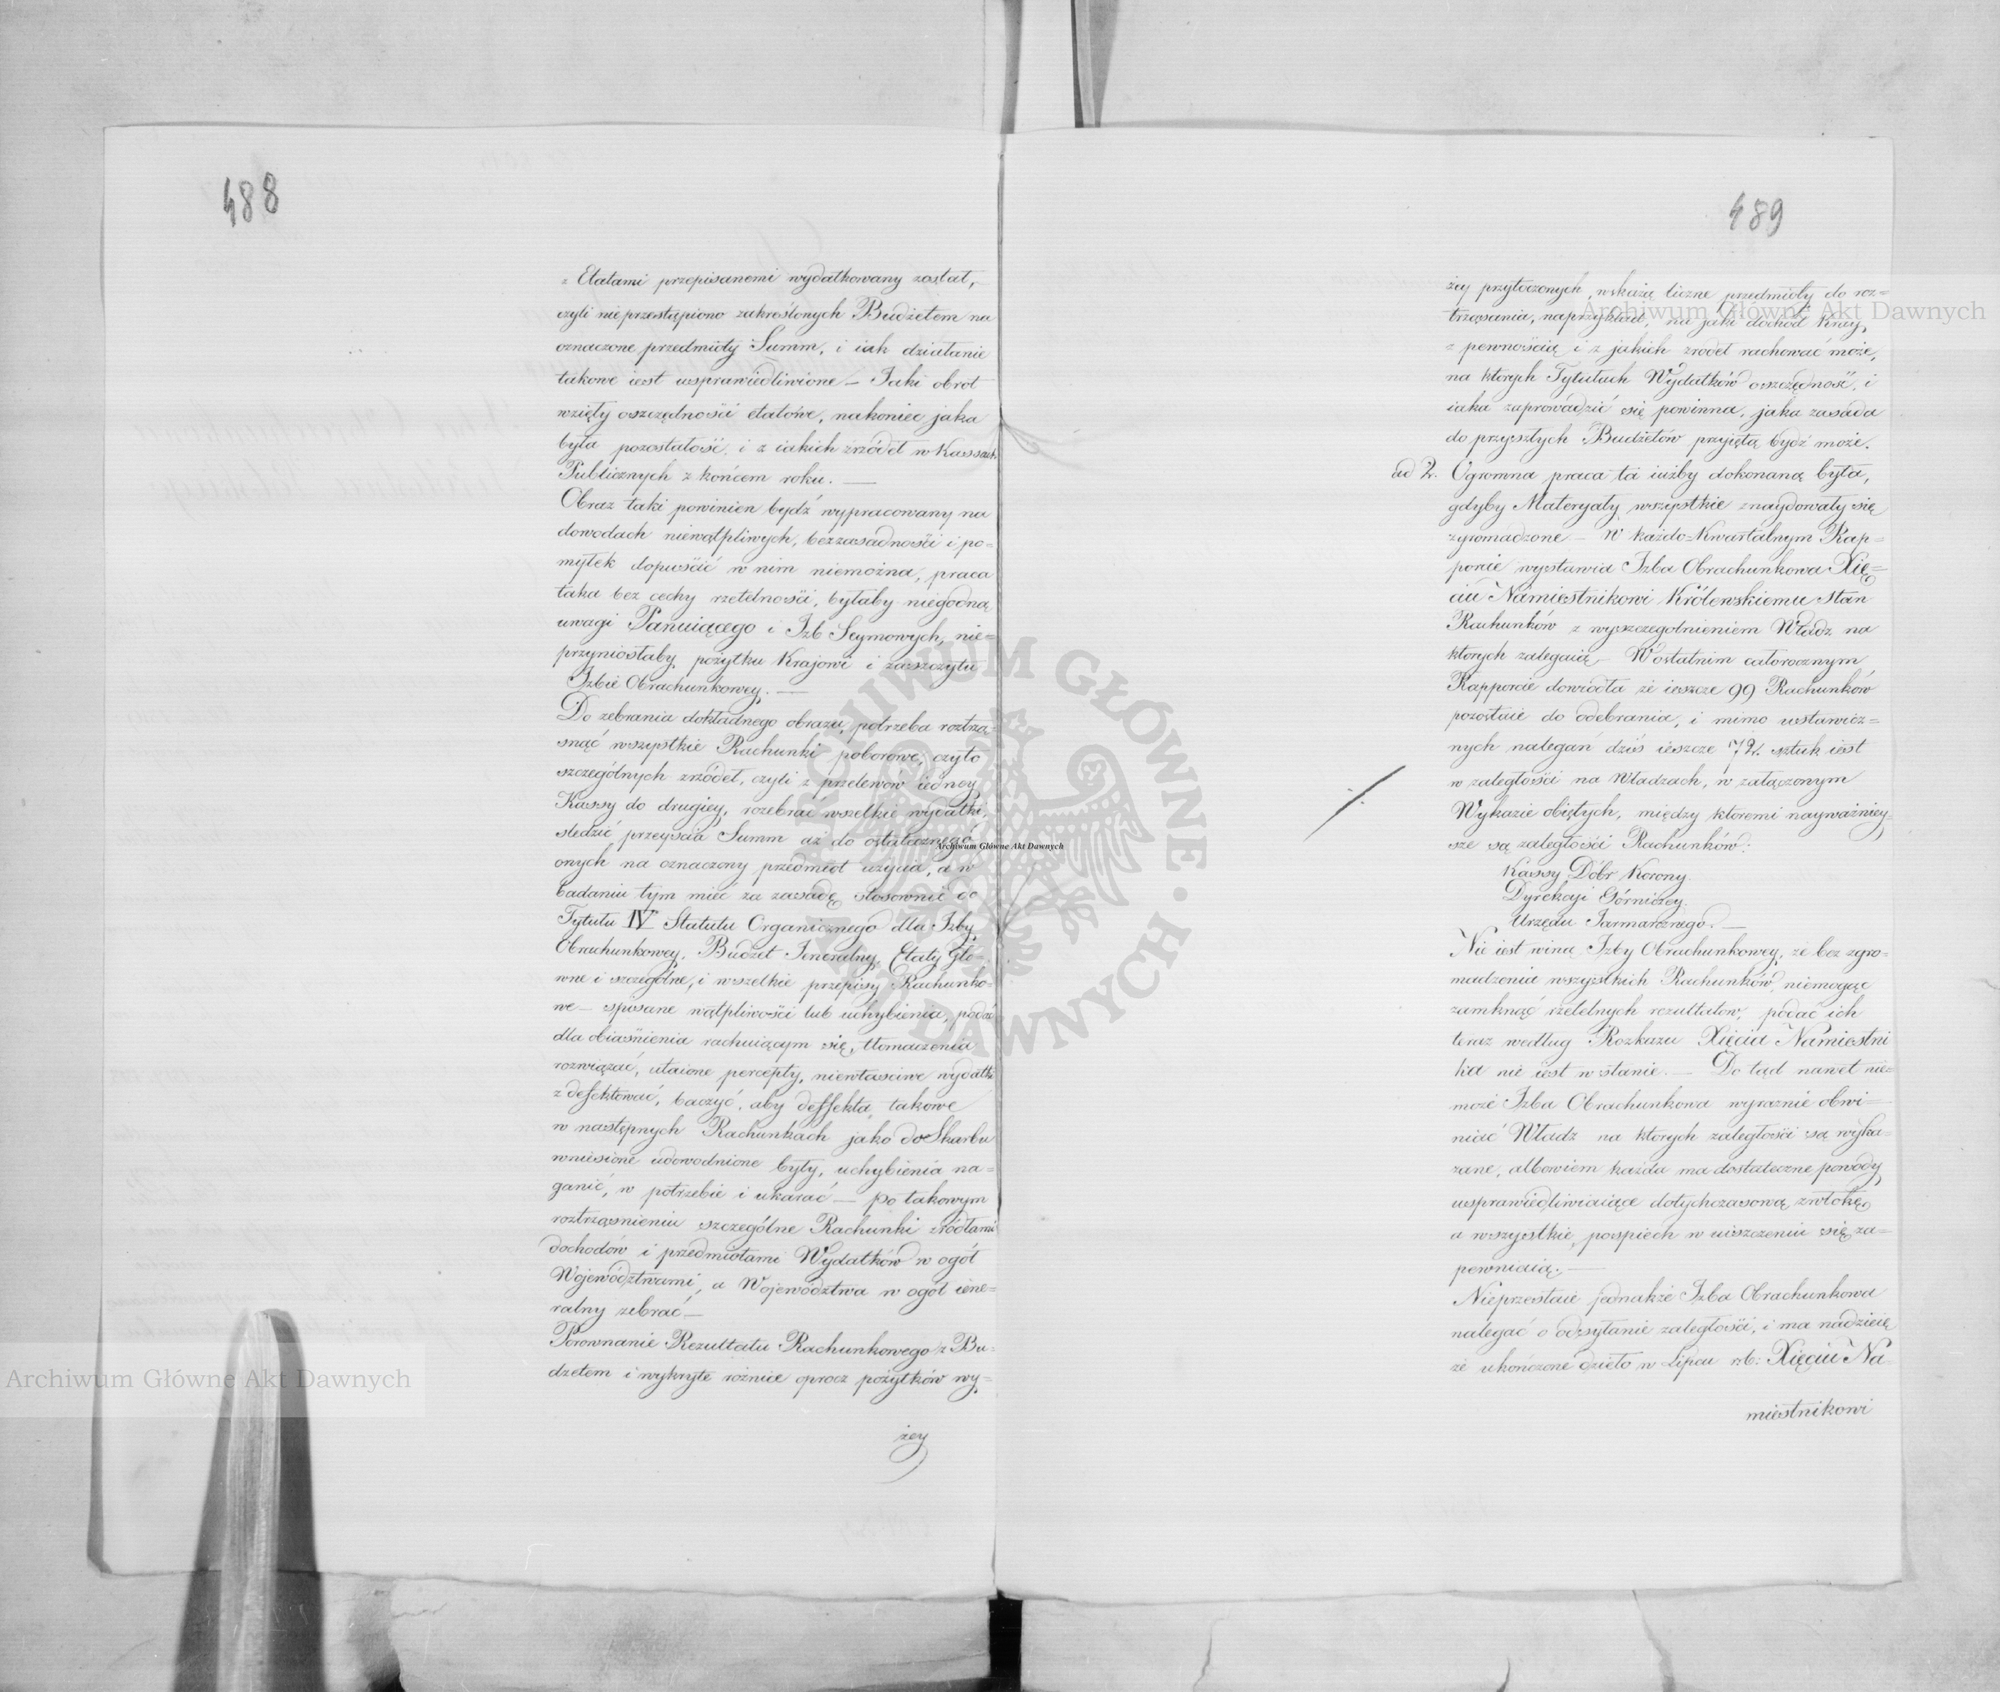 488
z Etatami przepisanemi wydatkowany został,
czyli nieprzestąpiono zakreślonych Budżetem na
oznaczone przedmioty Summ, i iak działanie
takowe iest usprawiedliwione — Jaki obrót
wzięły oszczędności etatowe, nakoniec jaka
była pozostałość, i z iakich źrzódeł w Kassach
Publicznych z końcem roku. —
Obraz taki powinien bydź wypracowany na
dowodach niewątpliwych, bezzasadności i po=
myłek dopuścić w nim niemożna, praca
taka bez cechy rzetelności, byłaby niegodną
uwagi Panuiącego i Izb Seymowych, nie=
przyniosłaby pożytku Krajowi i zaszczytu
Izbie Obrachunkowey. —
Do zebrania dokładnego obrazu, potrzeba roztrzą=
snąć wszystkie Rachunki poborowe, czyto
szczególnych źrzódeł, czyli z przelewów iedney
Kassy do drugiey, rozebrać wszelkie wydatki,
śledzić przeyścia Summ aż do ostatecznego
onych na oznaczony przedmiot użycia, a w
badaniu tym mieć za zasadę stosownie do
Tytułu IV Statutu Organicznego dla Izby
Obrachunkowey, Budżet Jeneralny, Etaty Głó=
wne i szczególne, i wszelkie przepisy Rachunko=
we — spisane wątpliwości lub uchybienia, podać
dla obiaśnienia rachuiącym się, tłomaczenia
rozwiązać, utaione percepty, niewłaściwe wydatki
zdefektować, baczyć, aby deffekta takowe
w następnych Rachunkach jako do Skarbu
wniesione udowodnione były, uchybienia na=
ganić, w potrzebie i ukarać — po takowym
roztrząśnieniu szczególne Rachunki źródłami
dochodów i przedmiotami Wydatków w ogół
Województwami, a Województwa w ogół iene=
ralny zebrać —
Porownanie Rezultatu Rachunkowego z Bu=
dżetem i wykryte różnice oprocz pożytków wy=
żey
489
żey przytoczonych, wskażą liczne przedmioty do roz=
trząsania, naprzykład, na jaki dochód Kray,
z pewnością i z jakich zrodeł rachować może,
na ktorych Tytułach Wydatków oszczędność, i
iaka zaprowadzić się powinna, jaka zasada
do przyszłych Budżetów przyjętą bydź może.
ad 2. Ogromna praca ta iużby dokonaną była,
gdyby Materyały wszystkie znaydowały się
zgromadzone — W każdo=Kwartalnym Rap=
porcie wystawia Izba Obrachunkowa Xię=
ciu Namiestnikowi Królewskiemu stan
Rachunków z wyszczegolnieniem Władz na
ktorych zalegaią — W ostatnim całorocznym
Rapporcie dowiodła że ieszcze 99 Rachunków
pozostaie do odebrania, i mimo ustawicz=
nych nalegań dziś ieszcze 72. sztuk iest
w zaległości na Władzach, w załączonym
Wykazie obiętych, między ktoremi nayważniey=
sze są zaległości Rachunków:
Kassy Dóbr Korony.
Dyrekcyi Górniczey.
Urzędu Jarmarcznego. —
Nie iest winą Izby Obrachunkowey, że bez zgro=
madzenia wszystkich Rachunków, niemogąc
zamknąć rzetelnych rezultatow, podać ich
teraz według Rozkazu Xięcia Namiestni
ka nie iest w stanie. — Do tąd nawet nie=
może Izba Obrachunkowa wyraznie obwi=
niać Władz na ktorych zaległości są wyka=
zane, albowiem każda ma dostateczne powody
usprawiedliwiaiące dotychczasową zwłokę
a wszystkie pospiech w uiszczeniu się za=
pewniaią. —
Nieprzestaie jednakże Izba Obrachunkowa
nalegać o odsyłanie zaległości, i ma nadzieię
że ukończone dzieło w Lipcu r.b: Xięciu Na=
miestnikowi
Archiwum Główne Akt Dawnych
Archiwum Główne Akt Dawnych
Archiwum Główne Akt Dawnych
ARCHIWUM GŁÓWNE AKT DAWNYCH